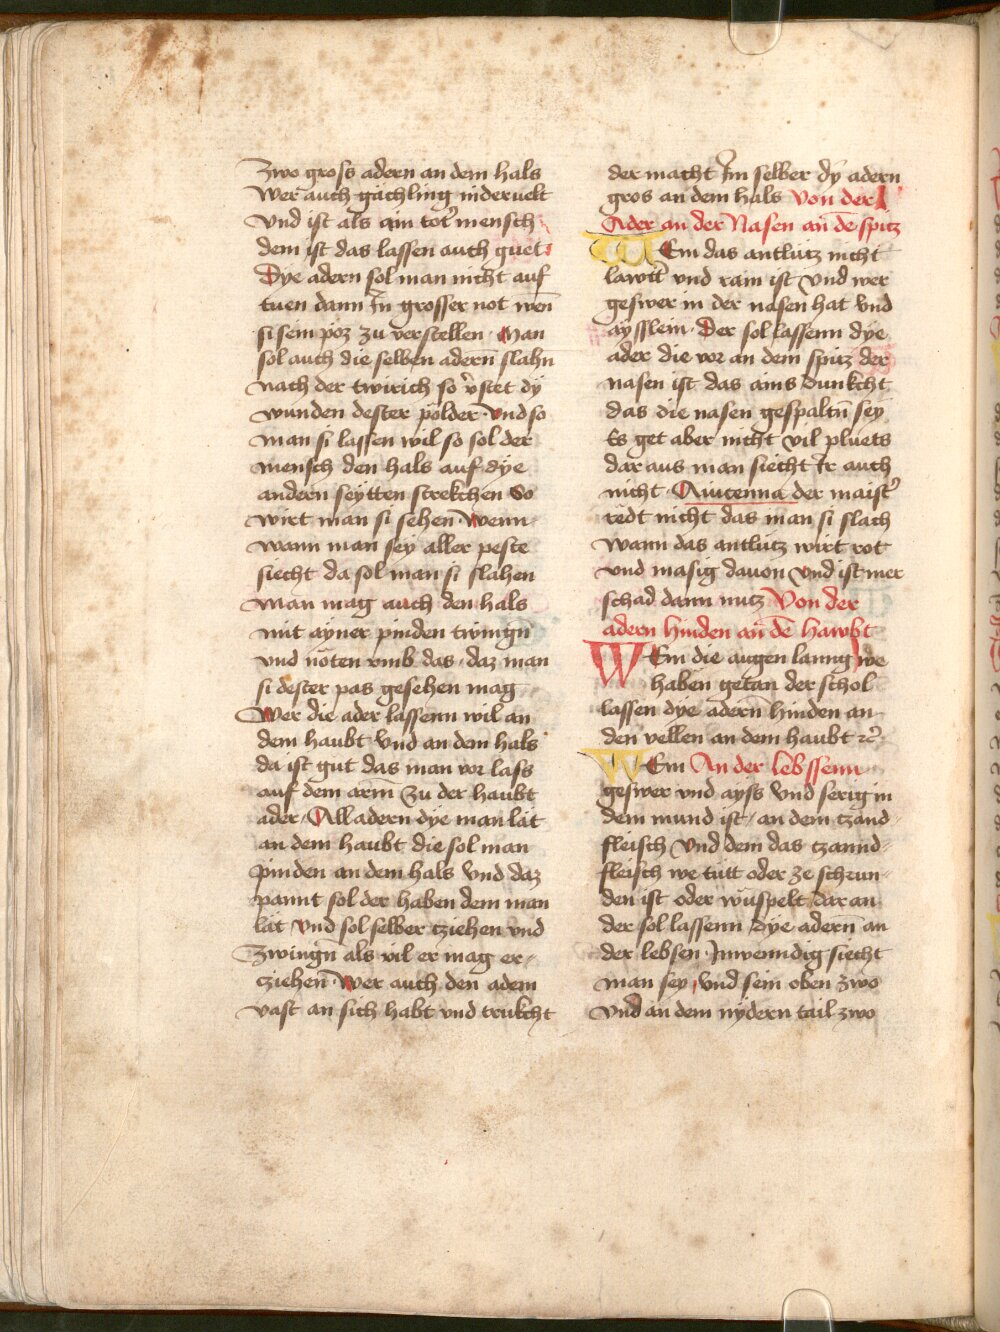 Zwo gross adern an dem hals
Wer auch gächling nidervelt
Vnd ist als ain tot' mensch
dem ist das lassen auch guet
Dye adern sol man nicht auf
tuen dann Jn grosser not wen̄
si sein poz zu verstellen · Man
sol auch die selben adern̄ slahn
nach der twirich so v'stet dÿ
wunden dester pölder · vnd so
man si lassen wil so sol der
mensch den hals auf dÿe
andern seÿtten strekchen So
wirt man si sehen · Wenn
wann man seÿ aller peste
siecht da sol man si slahen
Man mag auch den hals
mit aÿner pinden twingn̄
vnd nöten vmb das · daz man
si dester pas gesehen mag
Wer die ader lassenn wil an
dem haubt Vnd an dem hals
da ist gut das man vor lass
auf dem arm Zu der haubt
ader · All adern dÿe man lät
an dem haubt die sol man
pinden an dem hals Vnd daz
pannt sol der haben dem man
lät vnd sol selber cziehen vnd
Zwingn̄ als vil er mag er-
cziehen · Wer auch den adem
vast an sich habt vnd trukcht
der macht Jm selber dÿ adern
gros an dem hals Von der
Ader an der Nasen an̄ dē spitz
WEm das antlütz nicht
lawtt' vnd rain ist Vnd wer
geswer in der nasen hat Vnd
aÿsslein · Der sol lassenn dÿe
ader die vor an dem spitz der
nasen ist das ains Dunkcht
das die nasen gespaltn̄ seÿ
Es get aber nicht vil pluets
dar aus man siecht Jr auch
nicht · Auicenna der maist'
redt nicht das man si slach
Wann das antlütz wirt rot
vnd masig dauon Vnd ist mer
schad dann nutz Von der
adern hinden an̄ dē hawbt
WEm die augen lanng we
haben getan der schol
lassen dÿe adern̄ hinden an
den vellen an dem haubt ꝛc̄
WEm An der lebssenn
geswer vnd aÿss Vnd serig in
dem mund ist / an dem czand
fleisch Vnd dem das czannd-
fleisch we tütt oder Ze schrun-
den ist oder wüspelt dar an
der sol lassenn Dÿe adern̄ an
der lebsen · Jnwenndig siecht
man seÿ / vnd sein oben zwo
Vnd an dem nÿdern tail zwo